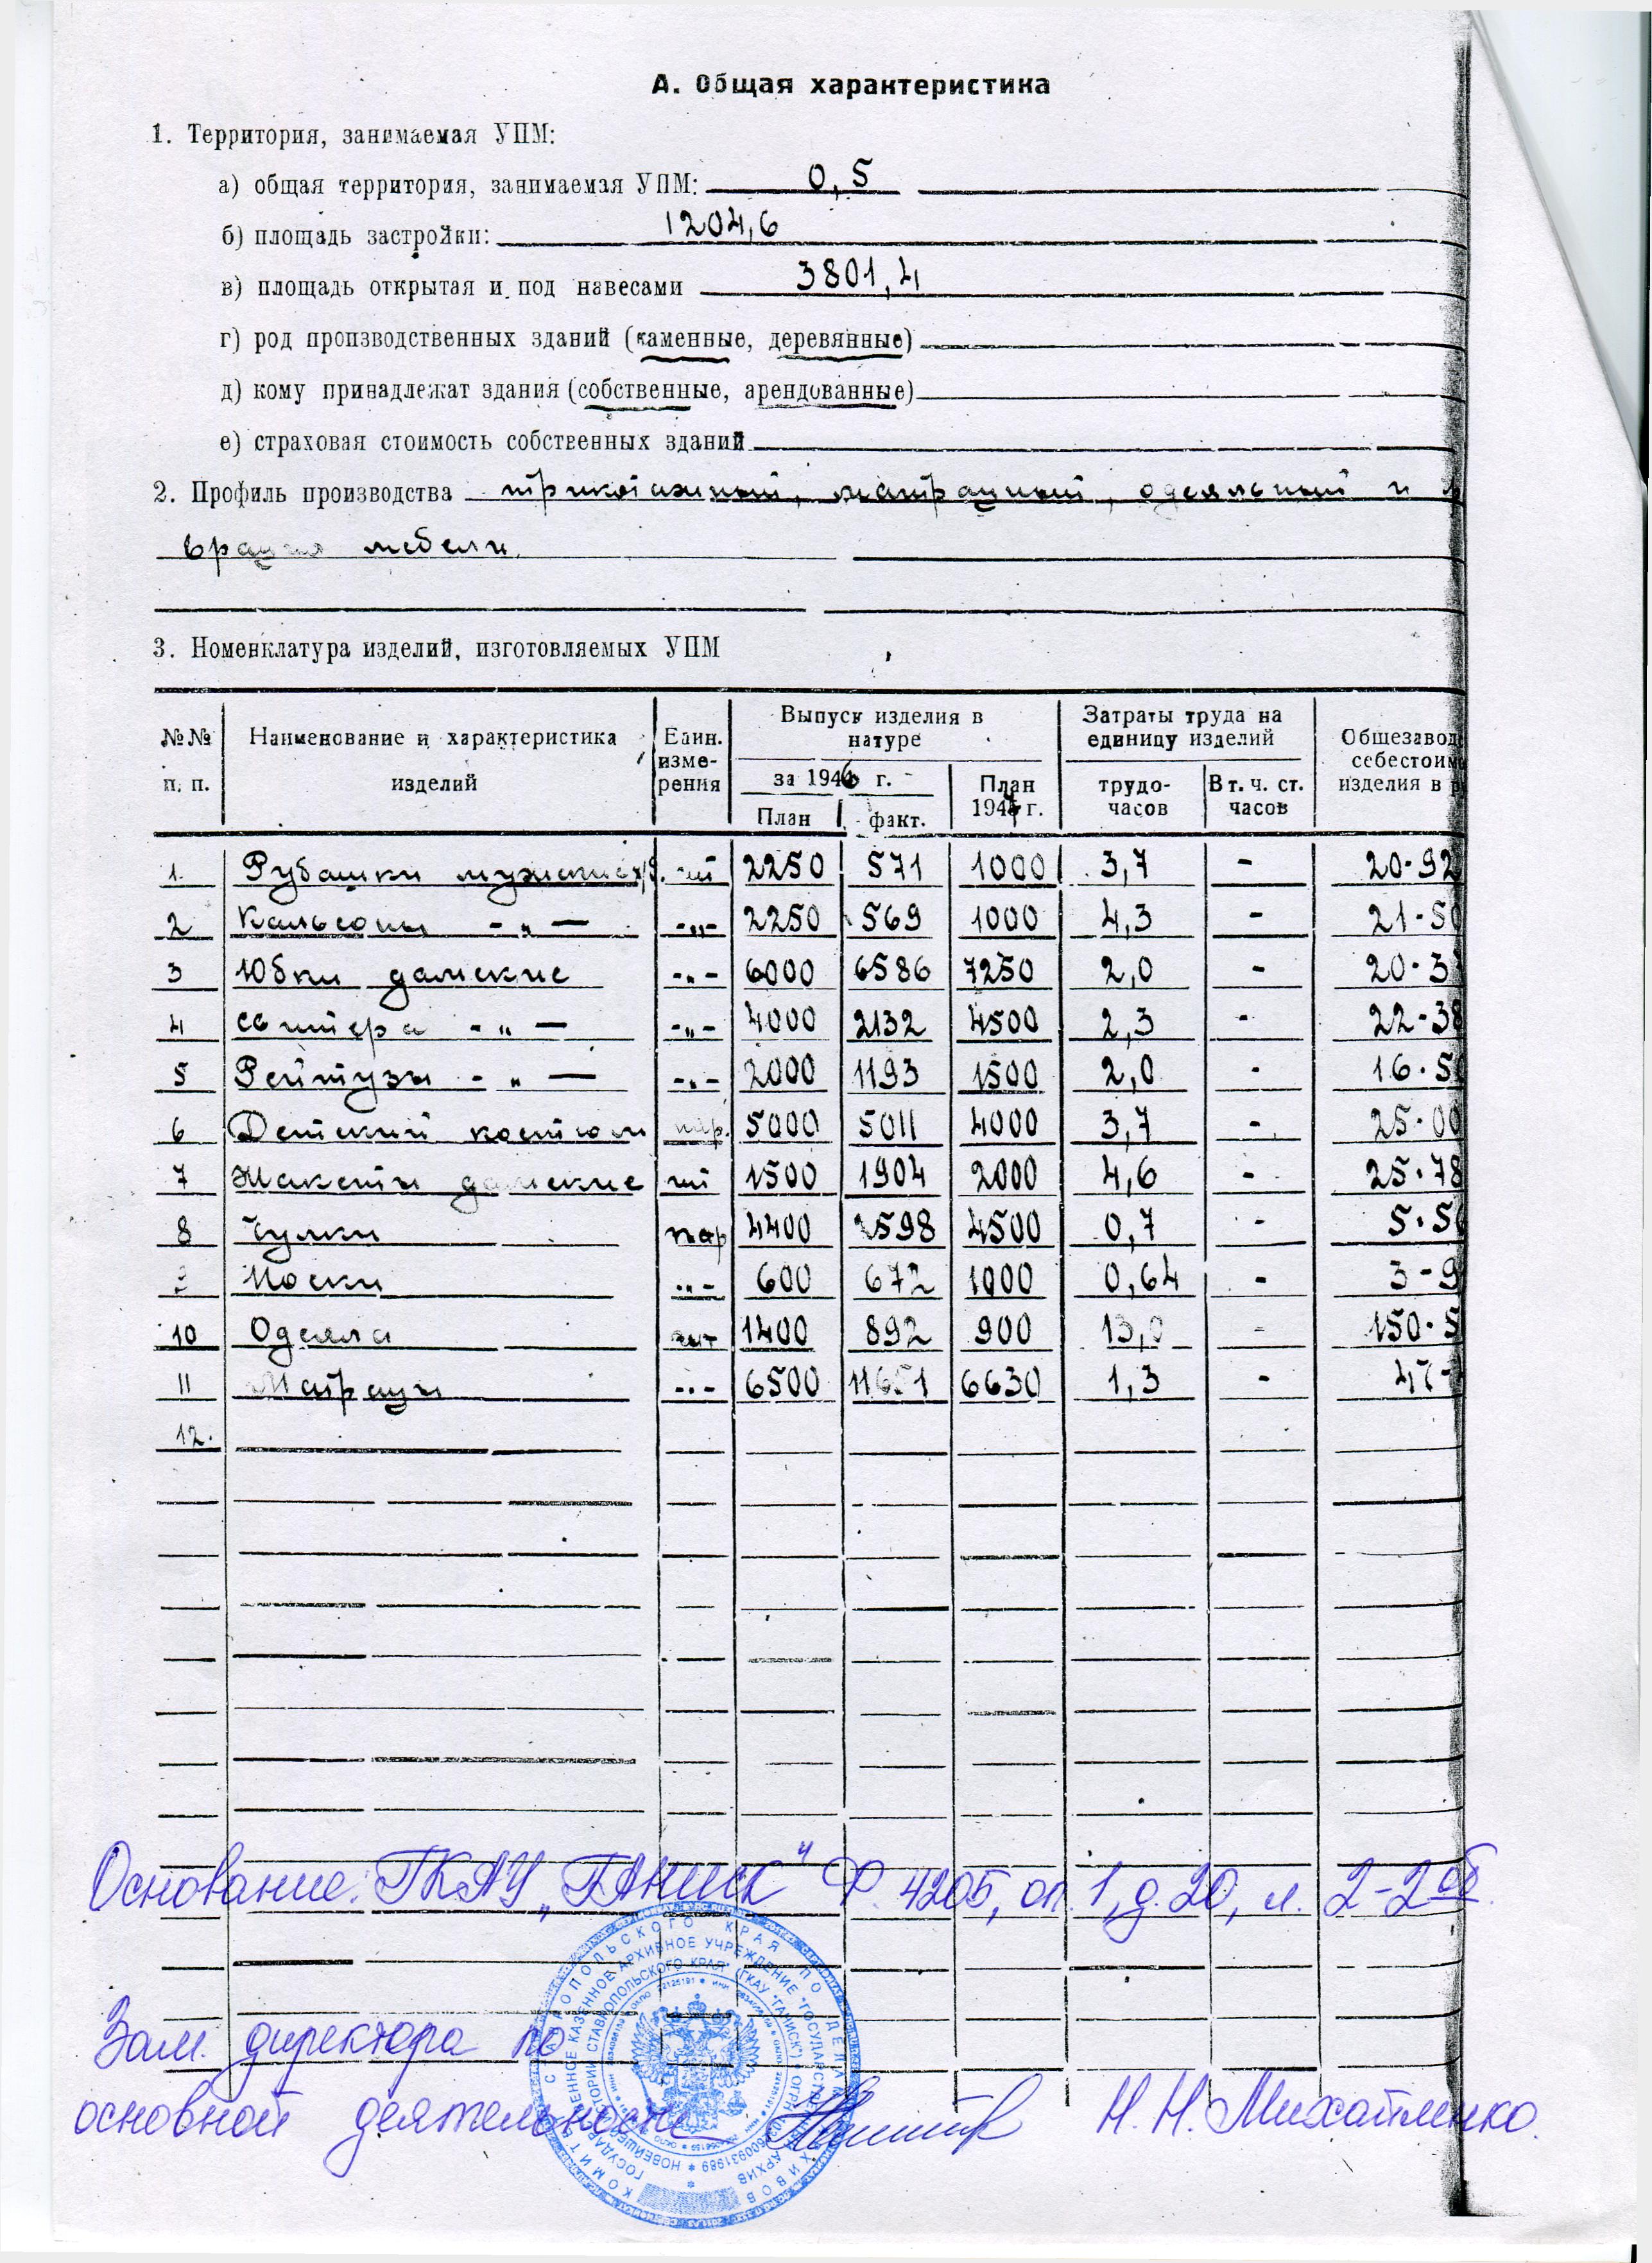 А. Общая характеристика
1. Территория, занимаемая УПМ:
а) общая территория, занимаемая УПМ: 0,5
б) площадь застройки: 1204,6
в) площадь открытая и под навесами 3801,4
г) род производственных зданий (каменные, деревянные)
д) кому принадлежат здания (собственные, арендованные)
е) страховая стоимость собственных зданий
2. Профиль производства трикотажный, матрацный, одеяльный и
мебели.
3. Номенклатура изделий, изготовляемых УПМ
№№ п. п. Наименование и характеристика изделий Един. изме-рения Выпуск изделия в натуре Затраты труда на единицу изделий Общезавод себестоим изделия в р
за 1946 г. План 194 г. трудо-часов В т. ч. ст. часов
План факт.
1. Рубашки мужские шт 2250 571 1000 3,7 - 20-92
2 Кальсоны -"- -"- 2250 569 1000 4,3 - 21-50
3 Юбки дамские -"- 6000 6586 7250 2,0 - 20-3
4 свитера -"- -"- 4000 2132 4500 2,3 - 22-38
5 Рейтузы -"- -"- 2000 1193 1500 2,0 - 16-5
6 Детский костюм пар. 5000 5011 4000 3,7 - 25-00
7 Жакеты дамские шт 1500 1904 2000 4,6 - 25-78
8 Чулки пар 4400 2598 4500 0,7 - 5-5
Носки "- 600 672 1000 0,64 - 3-9
10 Одеяла шт 1400 892 900 13,0 - 150-5
11 Матрацы -"- 6500 11651 6630 1,3 - 47-
12.
Основание: ГКАУ „ГАНИСК" Ф. 4205, оп. 1, д. 20, л. 2-2об.
Зам. директора по
основной деятельности Н. Н. Михайленко.